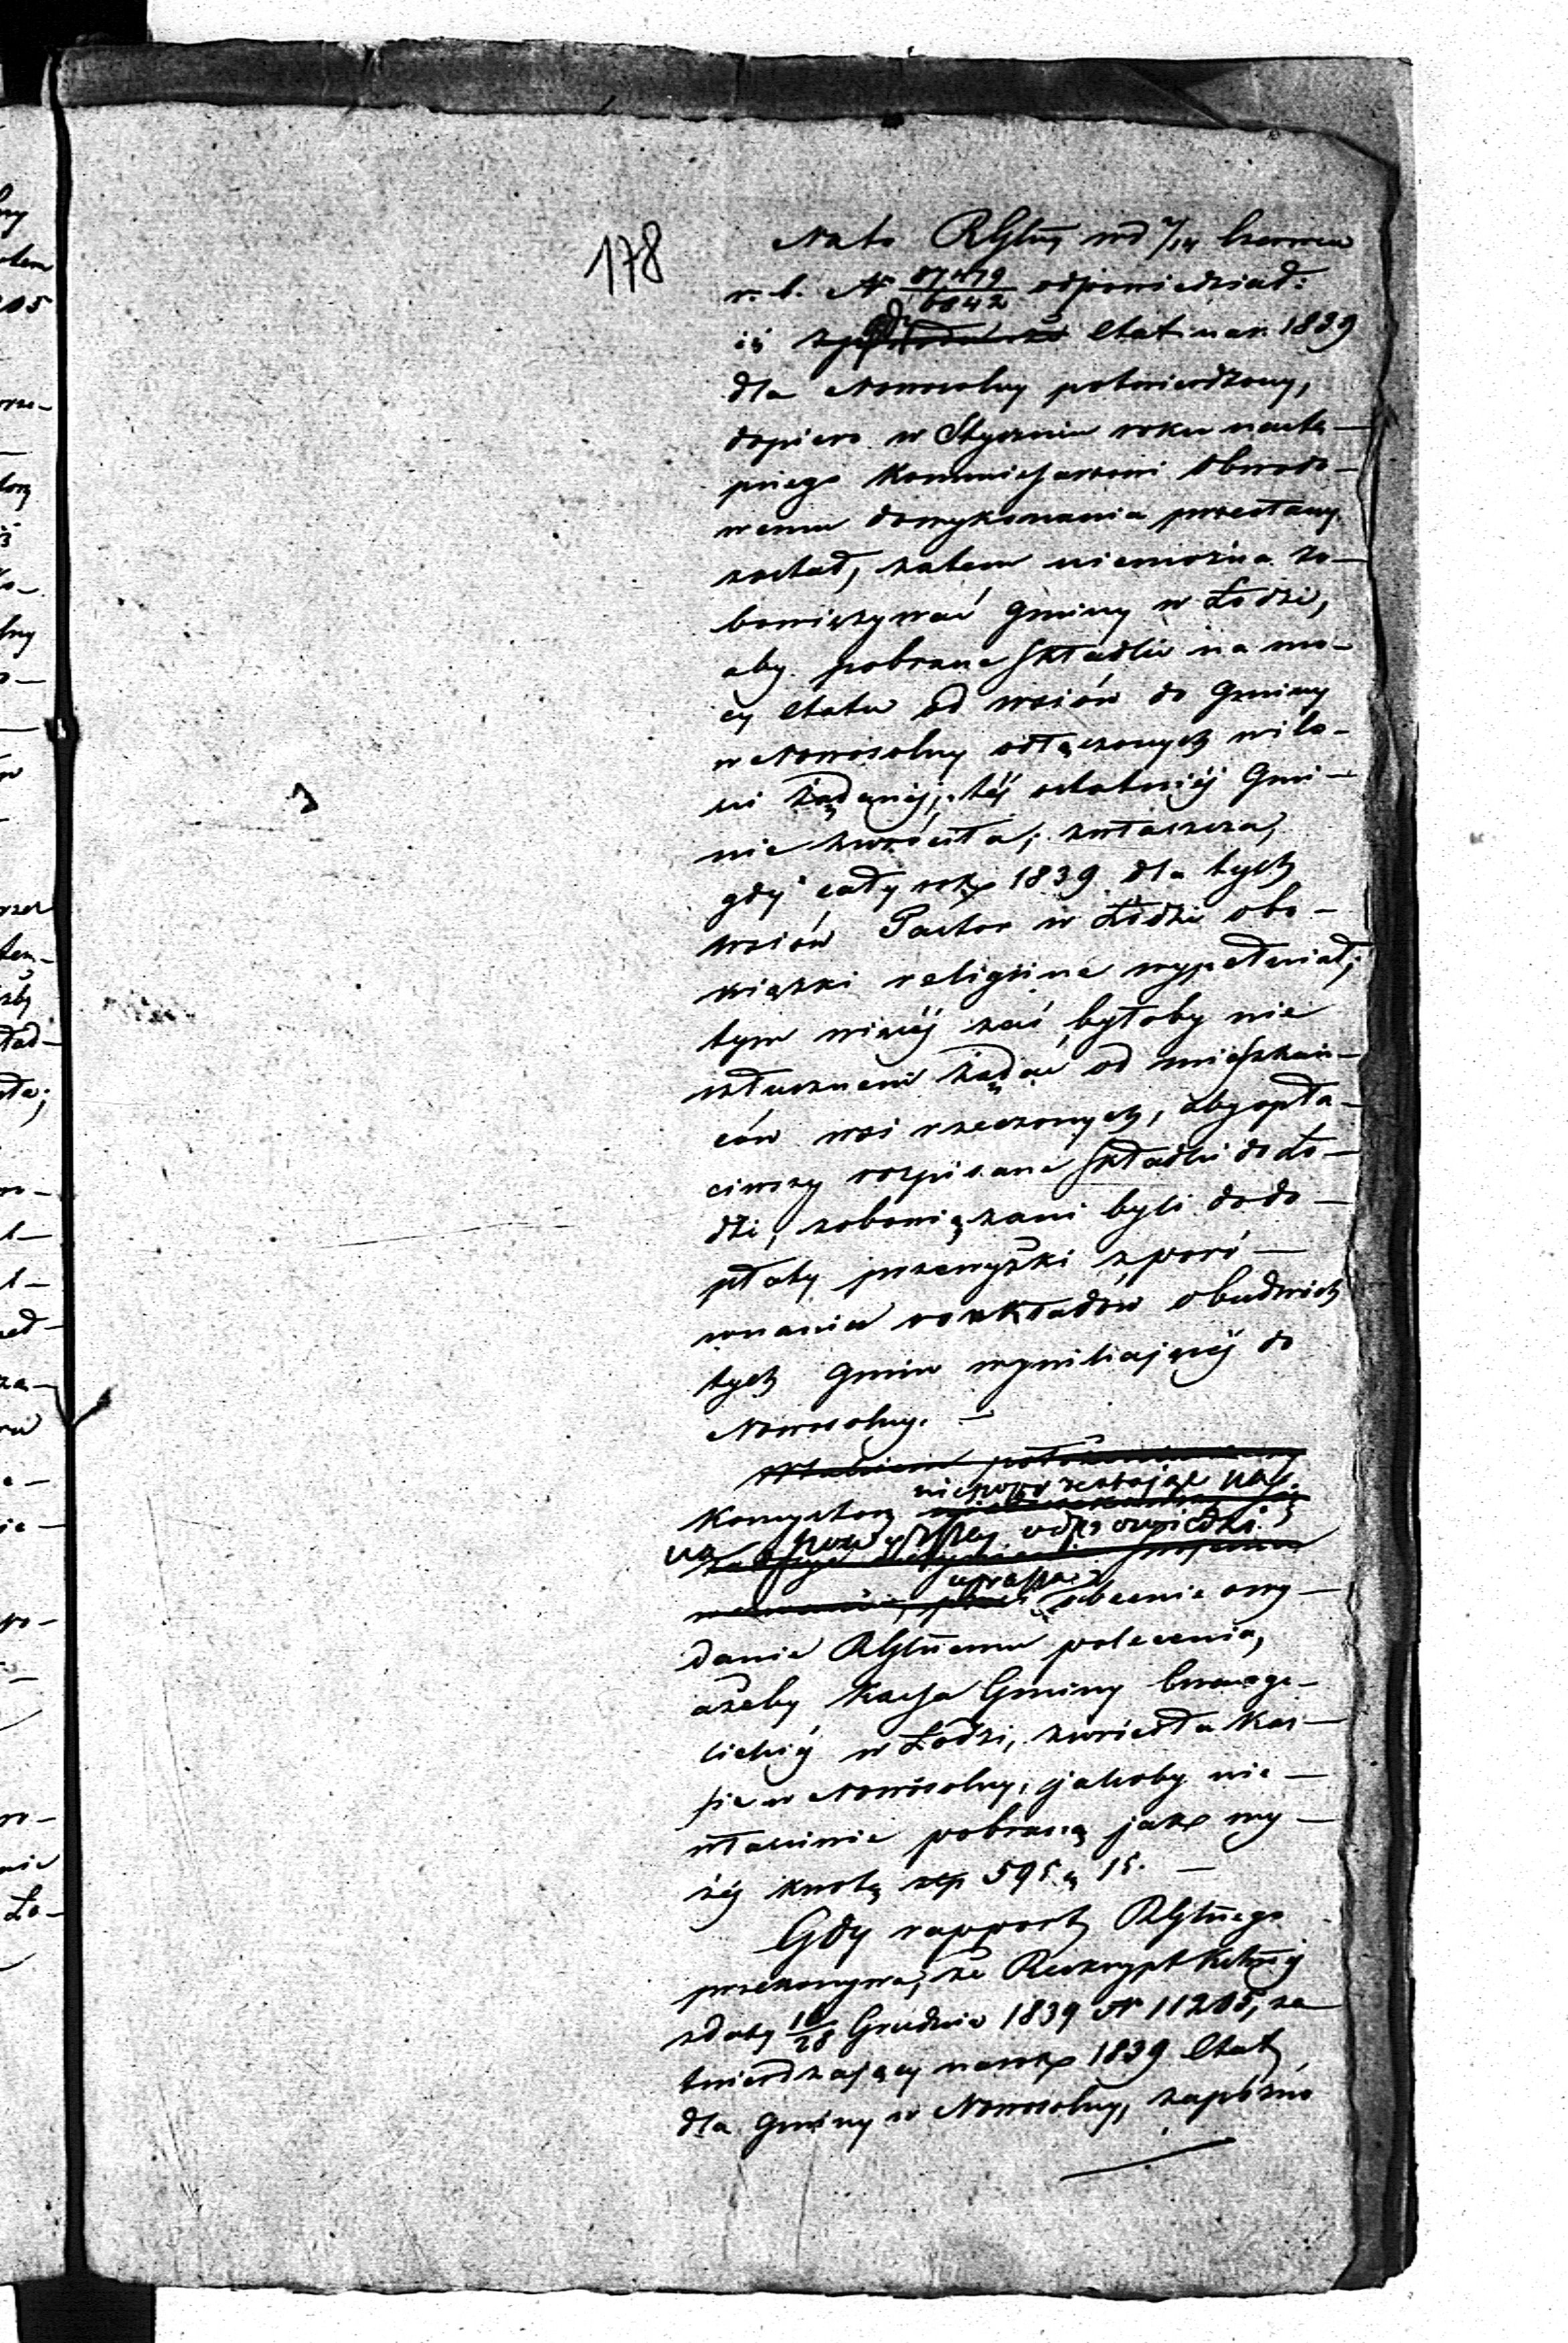 178
Na to RGlny od 2/14 Czerwca
r. b. N 87479/6042 odpowiedział:
iż Etat na r. 1839
dla Nowosolny potwierdzony,
dopiero w Styczniu roku nastę-
pnego Kommissarzowi Obwodo-
wemu do wykonania przesłany
został, zatem niemożna zo-
bowiązywać Gminy w Łodzi,
aby pobrane składki na mo-
cy Etatu od wsiów do Gminy
w Nowosolny odłączonych w ilo-
ści żądanéj, téj ostatniéj Gmi-
nie zwróciła; zwłaszcza,
gdy cały rok 1839 dla tych
wsiów Pastor w Łodzi obo-
wiązki religijne wypełniał;
tym więcéj zaś byłoby nie
słusznem żądać od mieszkań-
ców wsi rzeczonych, aby opła-
ciwszy rozpisane składki do Ło-
dzi, zobowiązani byli do do-
płaty przewyżki z poró-
wnania rozkładów obudwóch
tych Gmin wynikającéj do
Nowosolny. —
W takiem położeniu
niepoprzestając na
Konsystorz
na powyższej odpowiedzi
uprasza
obecnie o wy-
danie RGlnemu polecenia,
ażeby Kassa Gminy Ewange-
lickiéj w Łodzi, zwróciła Kas-
sie w Nowosolny, jakoby nie-
właściwie pobraną jak wy-
żéj kwotę złp 595 g 15. —
Gdy rapport RGlnego
przekonywa, że Reskrypt
z daty 16/28 Grudnia 1839 N 11205, za
twierdzający na rok 1839 Etat
dla Gminy w Nowosolny, zapóźno